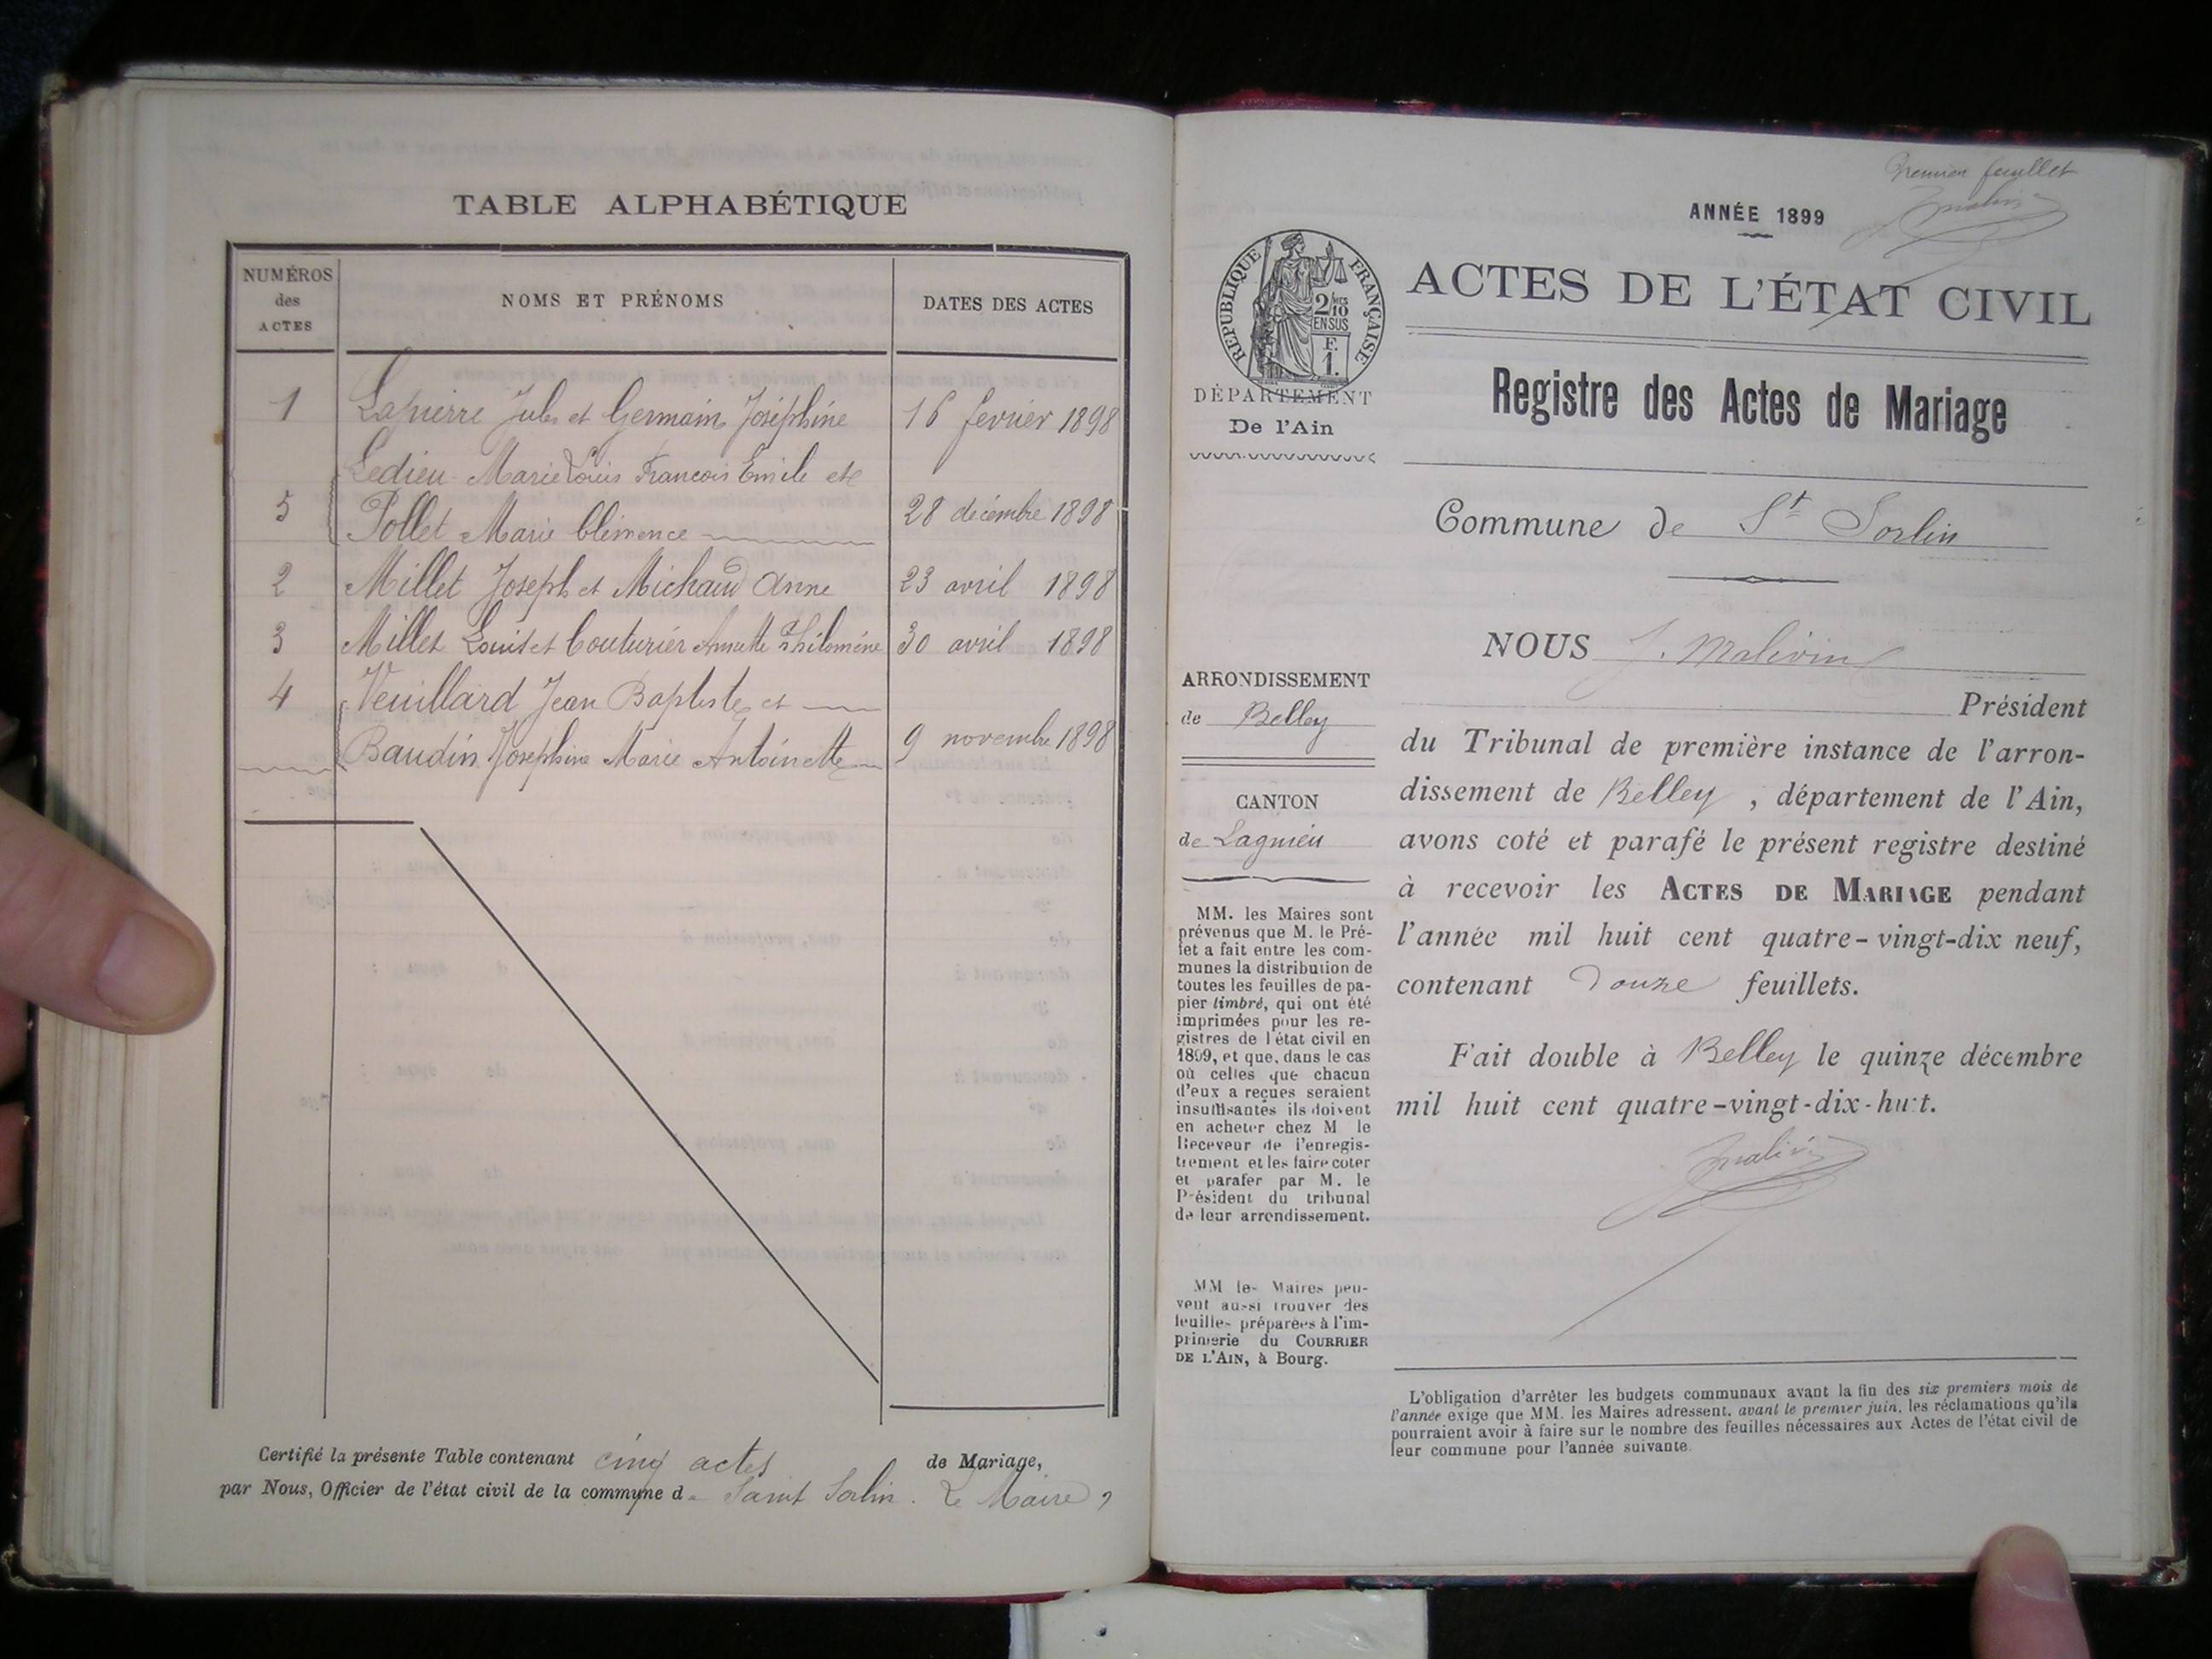 TABLE ALPHABÉTIQUE
NUMÉROS
des
ACTES
NOMS ET PRÉNOMS
DATES DES ACTES
1 Lapierre Jules et Germain Joséphine 16 fevrier 1898
Ledieu Marie Louis Francois Emile et
5 Pollet Marie Clémence 28 décémbre 1898
2 Millet Joseph et Michaud Anne 23 avril 1898
3 Millet Louis et Couturier Annette Philomène 30 avril 1898
4 Veuillard Jean Baptiste et
Baudin Josephine Marie Antoinette 9 novembre 1898
Certifié la présente Table contenant cinq actes de Mariage,
par Nous, Officier de l'état civil de la commune de Saint Sorlin. Le Maire,
Premier feuillet
Malivin
ANNÉE 1899
RÉPUBLIQUE FRANÇAISE
2/10 MES
EN SUS
F.
1.
ACTES DE L'ÉTAT CIVIL
DÉPARTEMENT
De l'Ain
Registre des Actes de Mariage
Commune de St Sorlin
NOUS J. Malivin
Président
du Tribunal de première instance de l'arron-
dissement de Belley, département de l'Ain,
avons coté et parafé le présent registre destiné
à recevoir les ACTES DE MARIAGE pendant
l'année mil huit cent quatre-vingt-dix neuf,
contenant Douze feuillets.
Fait double à Belley le quinze décembre
mil huit cent quatre-vingt-dix-huit.
Malivin
ARRONDISSEMENT
de Belley
CANTON
de Lagnieu
MM. les Maires sont
prévenus que M. le Pré-
fet a fait entre les com-
munes la distribution de
toutes les feuilles de pa-
pier timbré, qui ont été
imprimées pour les re-
gistres de l'état civil en
1899, et que, dans le cas
où celles que chacun
d'eux a reçues seraient
insuffisantes ils doivent
en acheter chez M. le
Receveur de l'enregis-
trement et les faire coter
et parafer par M. le
Président du tribunal
de leur arrondissement.
MM les Maires peu-
vent aussi trouver des
feuilles préparées à l'im-
primerie du COURRIER
DE L'AIN, à Bourg.
L'obligation d'arrêter les budgets communaux avant la fin des six premiers mois de
l'année exige que MM. les Maires adressent, avant le premier juin, les réclamations qu'ils
pourraient avoir à faire sur le nombre des feuilles nécessaires aux Actes de l'état civil de
leur commune pour l'année suivante.